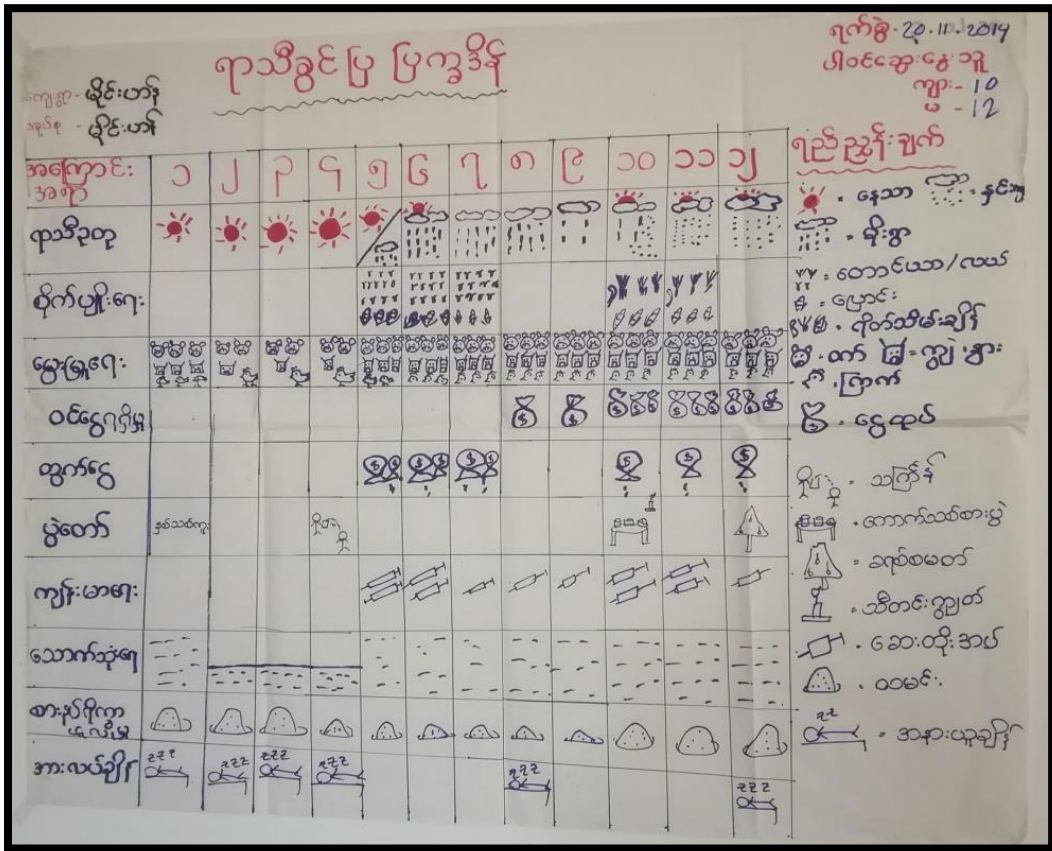 ရာသီခွင်ပြ ပြက္ခဒိန်
ရက်စွဲ-20.11.2019
ပါဝင်ဆွေးနွေးသူ
ကျား-10
မ -12
ကျေးရွာ- မိုင်းဟန်
အုပ်စု - မိုင်းဟန်
အကြောင်း အရာ ၁ ၂ ၃ ၄ ၅ ၆ ၇ ၈ ၉ ၁၀ ၁၁ ၁၂
ရာသီဥတု
စိုက်ပျိုးရေး
မွေးမြူရေး
ဝင်ငွေရရှိမှု
ထွက်ငွေ
ပွဲတော် နှစ်သစ်ကူး
ကျန်းမာရေး
သောက်သုံးရေ
စားနပ်ရိက္ခာ
အားလပ်ချိန် zzz zzz zzz zzz zzz zzz
ရည်ညွှန်းချက်
= နေသာ = နှင်းကျ
= မိုးရွာ
= တောင်ယာ/လယ်
= ပြောင်း
= ရိတ်သိမ်းချိန်
= ဝက် = ကျွဲ၊နွား
= ကြက်
= ငွေထုပ်
= သင်္ကြန်
= ကောက်သစ်စားပွဲ
= ခရစ်စမတ်
= သီတင်းကျွတ်
= ဆေးထိုးအပ်
= ထမင်း
zz = အနားယူချိန်